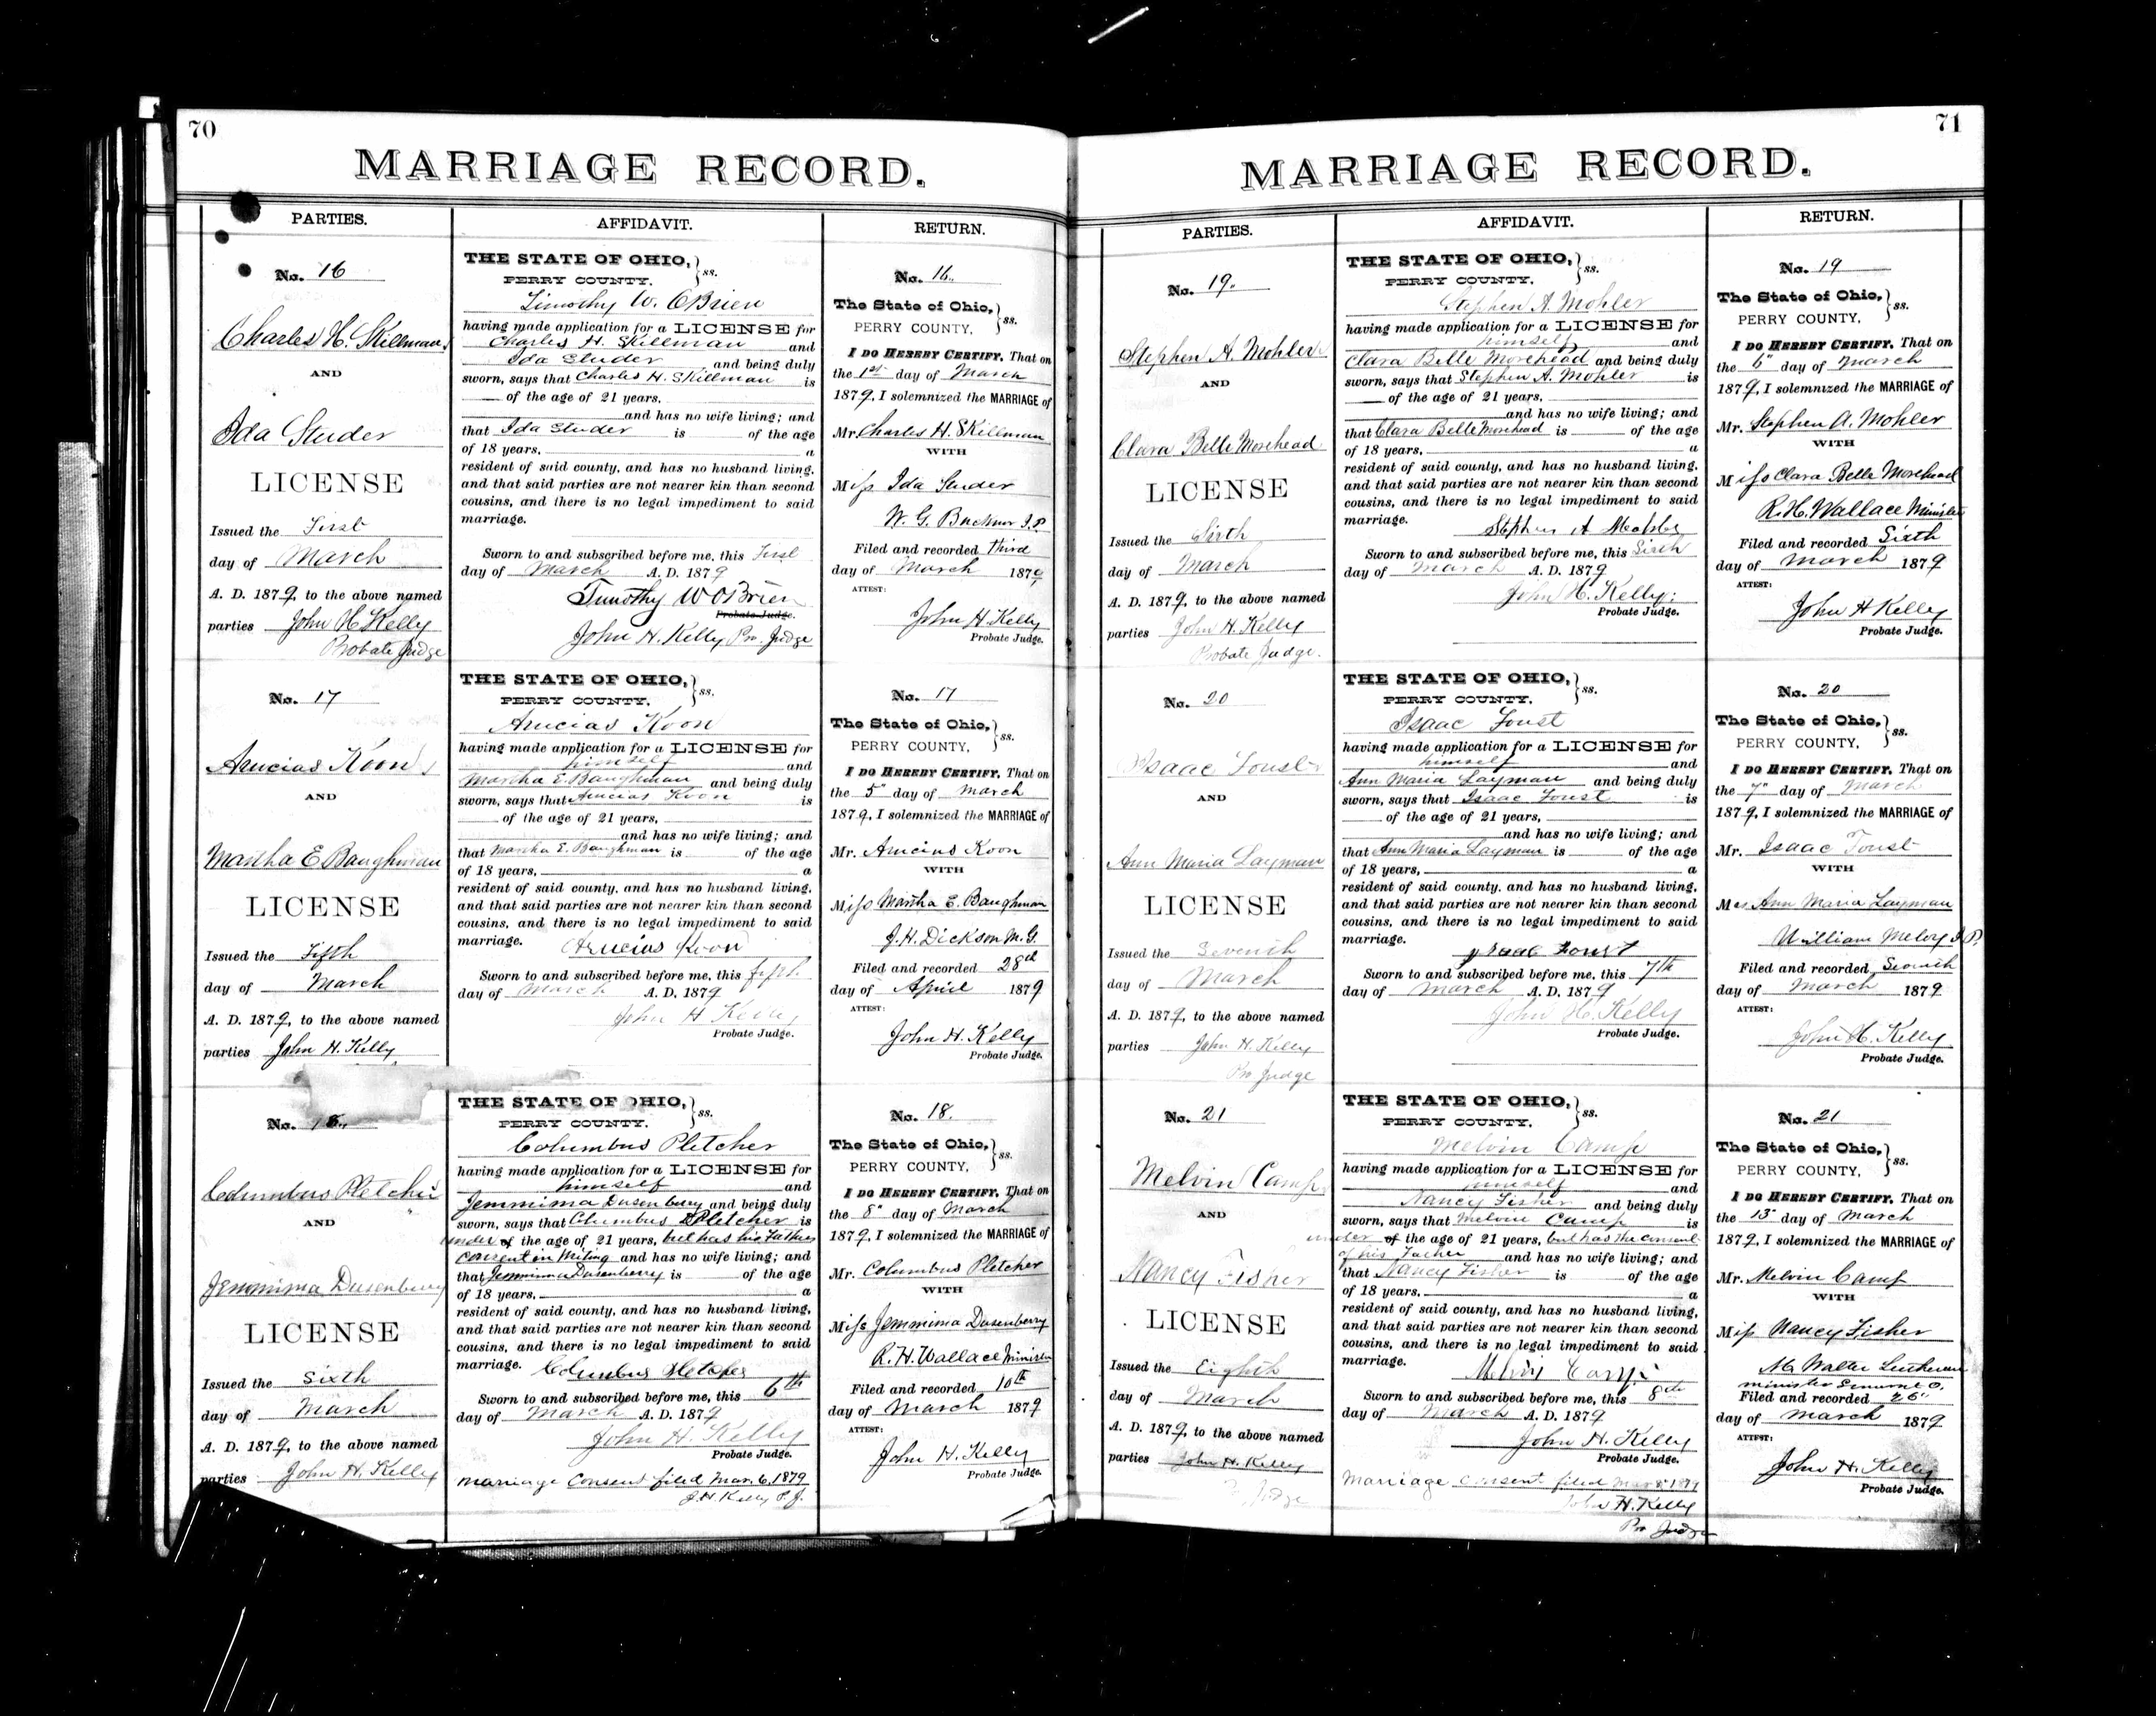 70
MARRIAGE RECORD.
PARTIES.
AFFIDAVIT.
RETURN.
No. 16
Charles H. Skillman
AND
Ida Studer
LICENSE
Issued the First
day of March
A. D. 1879, to the above named
parties John H Kelly
Probate Judge
THE STATE OF OHIO, } ss.
PERRY COUNTY.
Timothy W. OBrien
having made application for a LICENSE for
Charles H. Skillman and
Ida Studer and being duly
sworn, says that Charles H. Skillman is
of the age of 21 years,
and has no wife living; and
that Ida Studer is of the age
of 18 years, a
resident of said county, and has no husband living,
and that said parties are not nearer kin than second
cousins, and there is no legal impediment to said
marriage.
Sworn to and subscribed before me, this First
day of March A. D. 1879
Timothy W OBrien
Probate Judge.
John H. Kelly, Pro. Judge
No. 16.
The State of Ohio, } ss.
PERRY COUNTY,
I DO HEREBY CERTIFY, That on
the 1st day of March
1879, I solemnized the MARRIAGE of
Mr. Charles H. Skillman
WITH
Miss Ida Studer
W. G. J.P.
Filed and recorded third
day of March 1879
ATTEST:
John H Kelly
Probate Judge.
No. 17
Arucias Koon
AND
Martha E Baughman
LICENSE
Issued the Fifth
day of March
A. D. 1879, to the above named
parties John H. Kelly
THE STATE OF OHIO, } ss.
PERRY COUNTY.
Arucias Koon
having made application for a LICENSE for
himself and
Martha E. Baughman and being duly
sworn, says that Arucias Koon is
of the age of 21 years,
and has no wife living; and
that Martha E. Baughman is of the age
of 18 years, a
resident of said county, and has no husband living,
and that said parties are not nearer kin than second
cousins, and there is no legal impediment to said
marriage.
Arucias Koon
Sworn to and subscribed before me, this fifth
day of March A. D. 1879
John H Kelly
Probate Judge.
No. 17
The State of Ohio, } ss.
PERRY COUNTY,
I DO HEREBY CERTIFY, That on
the 5" day of March
1879, I solemnized the MARRIAGE of
Mr. Arucias Koon
WITH
Miss Martha E. Baughman
J. H. Dickson M. G.
Filed and recorded 28th
day of April 1879
ATTEST:
John H. Kelly
Probate Judge.
No. 18.
Columbus Pletcher
AND
Jemmima Dusenbury
LICENSE
Issued the Sixth
day of March
A. D. 1879, to the above named
parties John H. Kelly
THE STATE OF OHIO, } ss.
PERRY COUNTY.
Columbus Pletcher
having made application for a LICENSE for
himself and
Jemmima Dusenbury and being duly
sworn, says that Columbus Pletcher is
under of the age of 21 years, but has his Fathers
consent in Writing and has no wife living; and
that Jemmima Dusenberry is of the age
of 18 years, a
resident of said county, and has no husband living,
and that said parties are not nearer kin than second
cousins, and there is no legal impediment to said
marriage.
Columbus Pletcher
Sworn to and subscribed before me, this 6th
day of March A. D. 1879
John H. Kelly
Probate Judge.
marriage Consent filed Mar. 6, 1879
J. H. Kelly P. J.
No. 18.
The State of Ohio, } ss.
PERRY COUNTY,
I DO HEREBY CERTIFY, That on
the 8" day of March
1879, I solemnized the MARRIAGE of
Mr. Columbus Pletcher
WITH
Miss Jemmima Dusenberry
R. H. Wallace Minister
Filed and recorded 10th
day of March 1879
ATTEST:
John H. Kelly
Probate Judge.
71
MARRIAGE RECORD.
PARTIES.
AFFIDAVIT.
RETURN.
No. 19.
Stephen A. Mohler
AND
Clara Belle Morehead
LICENSE
Issued the Sixth
day of March
A. D. 1879, to the above named
parties John H. Kelly
Probate Judge.
THE STATE OF OHIO, } ss.
PERRY COUNTY.
Stephen A. Mohler
having made application for a LICENSE for
himself and
Clara Belle Morehead and being duly
sworn, says that Stephen A. Mohler is
of the age of 21 years,
and has no wife living; and
that Clara Belle Morehead is of the age
of 18 years, a
resident of said county, and has no husband living,
and that said parties are not nearer kin than second
cousins, and there is no legal impediment to said
marriage.
Stephen A Mohler
Sworn to and subscribed before me, this Sixth
day of March A. D. 1879
John H. Kelly.
Probate Judge.
No. 19
The State of Ohio, } ss.
PERRY COUNTY,
I DO HEREBY CERTIFY, That on
the 6" day of March
1879, I solemnized the MARRIAGE of
Mr. Stephen A. Mohler
WITH
Miss Clara Belle Morehead
R. H. Wallace Minister
Filed and recorded Sixth
day of March 1879
ATTEST:
John H Kelly
Probate Judge.
No. 20
Isaac Foust
AND
Ann Maria Layman
LICENSE
Issued the Seventh
day of March
A. D. 1879, to the above named
parties John H. Kelly
Pro Judge
THE STATE OF OHIO, } ss.
PERRY COUNTY.
Isaac Foust
having made application for a LICENSE for
himself and
Ann Maria Layman and being duly
sworn, says that Isaac Foust is
of the age of 21 years,
and has no wife living; and
that Ann Maria Layman is of the age
of 18 years, a
resident of said county, and has no husband living,
and that said parties are not nearer kin than second
cousins, and there is no legal impediment to said
marriage.
Isaac Foust
Sworn to and subscribed before me, this 7th
day of March A. D. 1879
John H. Kelly
Probate Judge.
No. 20
The State of Ohio, } ss.
PERRY COUNTY,
I DO HEREBY CERTIFY, That on
the 7" day of March
1879, I solemnized the MARRIAGE of
Mr. Isaac Foust
WITH
Ann Maria Layman
William Meloy J. P.
Filed and recorded Seventh
day of March 1879
ATTEST:
John H. Kelly
Probate Judge.
No. 21
Melvin Camp
AND
Nancy Fisher
LICENSE
Issued the Eighth
day of March
A. D. 1879, to the above named
parties John H. Kelly
P. Judge
THE STATE OF OHIO, } ss.
PERRY COUNTY.
Melvin Camp
having made application for a LICENSE for
himself and
Nancy Fisher and being duly
sworn, says that Melvin Camp is
under of the age of 21 years, but has the consent
of his Father and has no wife living; and
that Nancy Fisher is of the age
of 18 years, a
resident of said county, and has no husband living,
and that said parties are not nearer kin than second
cousins, and there is no legal impediment to said
marriage.
Melvin Camp
Sworn to and subscribed before me, this 8th
day of March A. D. 1879
John H. Kelly
Probate Judge.
Marriage consent filed Mar 8" 1879
John H. Kelly
Pro Judge
No. 21
The State of Ohio, } ss.
PERRY COUNTY,
I DO HEREBY CERTIFY, That on
the 13" day of March
1879, I solemnized the MARRIAGE of
Mr. Melvin Camp
WITH
Miss Nancy Fisher
Walter Lutheran
minister O.
Filed and recorded 26"
day of March 1879
ATTEST:
John H. Kelly
Probate Judge.